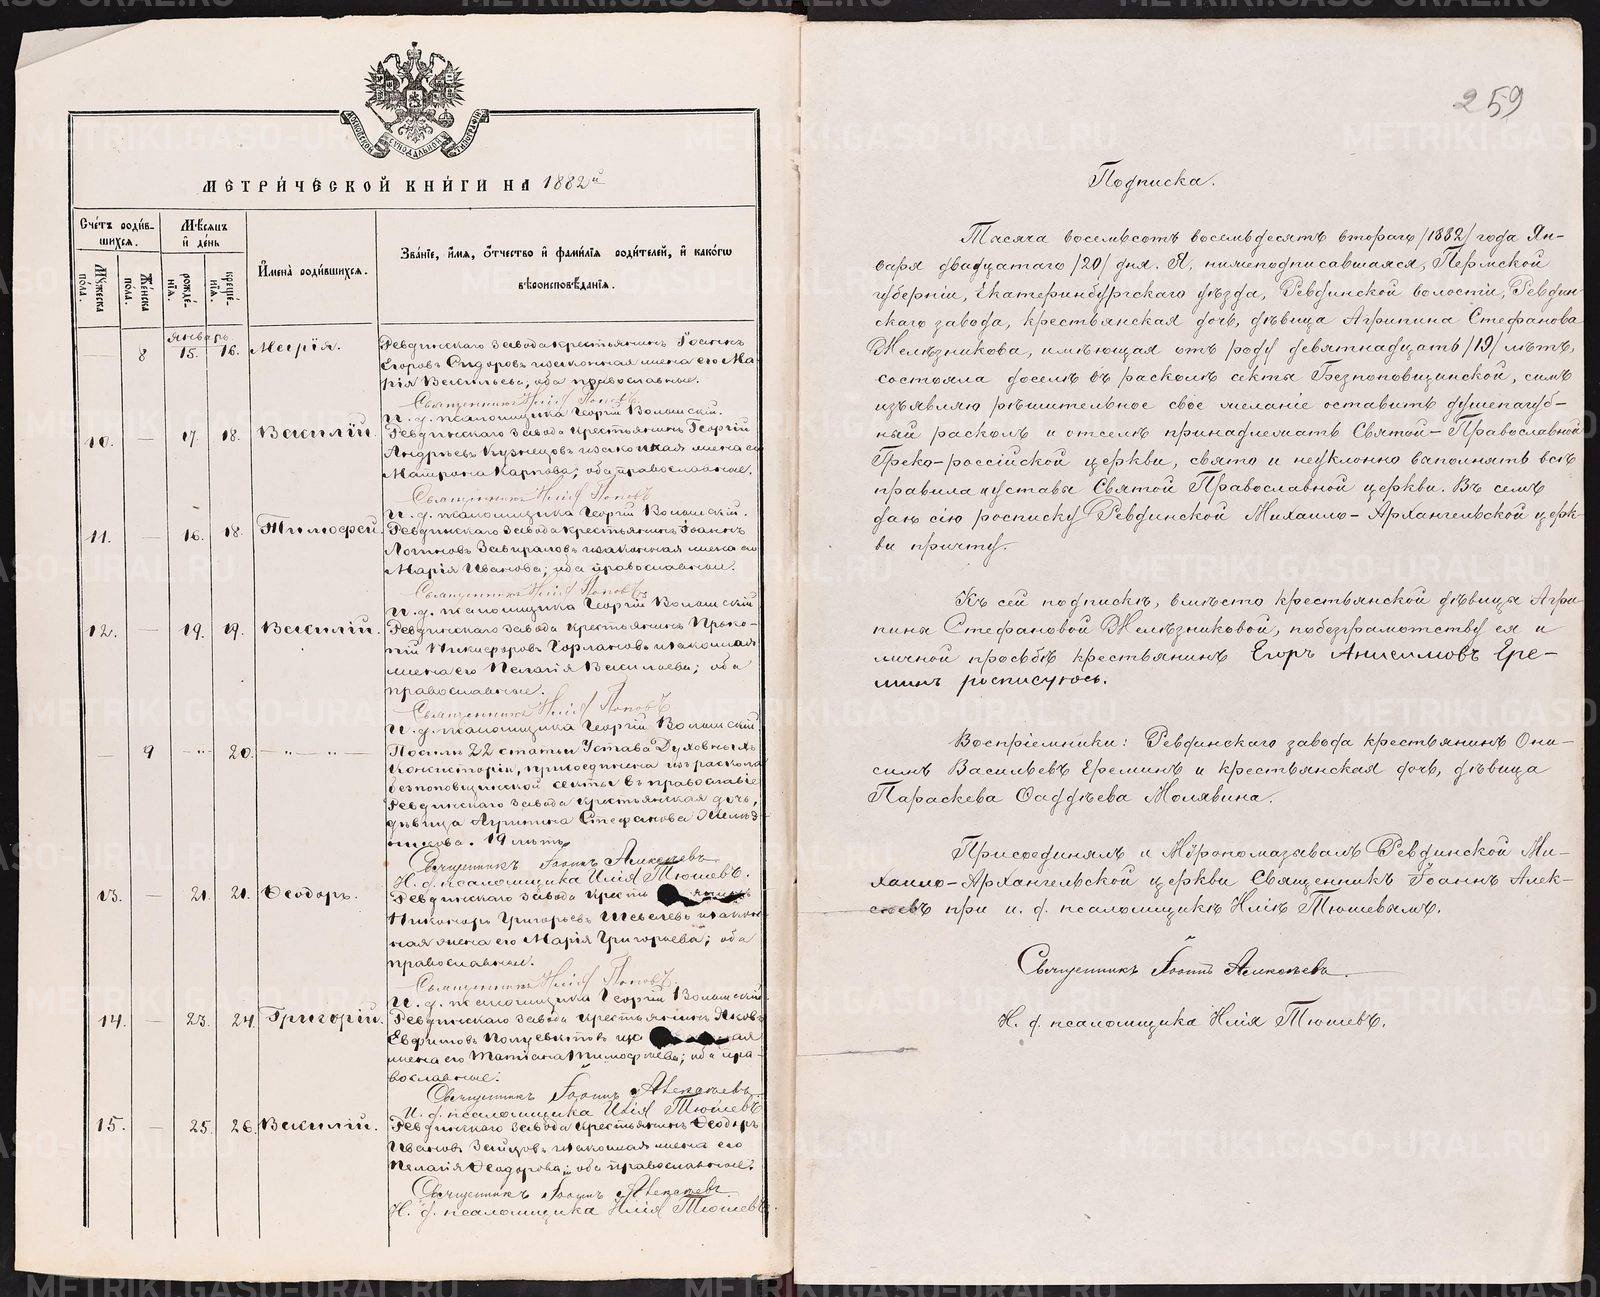 МЕТРИ́ЧЕСКОЙ КНИ́ГИ НА 1882й
Сче́тъ роди́в-
шихся.
Мѣсяцъ
и҆ де́нь
Мꙋжеска
по́ла.
Же́нска
по́ла.
рожде́-
нїѧ.
креще́-
нїѧ.
И҆мена̀ роди́вшихся.
Зва́нїе, и҆́мя, ѻ҆́тчество и҆ фами́лїя роди́телей, и҆ како́гѡ
вѣроисповѣ́данїя.
Январь
— 8 15. 16. Марія. Ревдинскаго завода крестьянинъ Іоаннъ
Егоровъ Сидоровъ и законная жена его Ма-
рія Васильева, оба православные.
Священникъ Илія Поповъ
И. д. псаломщика Георгій Волынскій.
10. — 17. 18. Василій. Ревдинскаго завода крестьянинъ Георгій
Андреевъ Кузнецовъ и законная жена его
Матрона Карпова; оба православные.
Священникъ Илія Поповъ
И. д. псаломщика Георгій Волынскій.
11. — 16. 18. Тимофей. Ревдинскаго завода крестьянинъ Іоаннъ
Логиновъ Завираловъ и законная жена его
Марія Иванова; оба православные.
Священникъ Илія Поповъ
И. д. псаломщика Георгій Волынскій
12. — 19. 19. Василій. Ревдинскаго завода крестьянинъ Проко-
пій Никифоровъ Горлановъ и законная
жена его Пелагія Васильева; оба
православные.
Священникъ Илія Поповъ
И. д. псаломщика Георгій Волынскій
— 9 —"— 20. —"— —"— По силѣ 22 статьи Устава Духовныхъ
Консисторій, присоединена изъ раскола
безпоповщинской секты въ православіе
Ревдинскаго завода крестьянская дочь,
дѣвица Агрипина Стефанова Желѣз-
никова. 19 лѣтъ.
Священникъ Іоаннъ Алексѣевъ
И. д. псаломщика Илія Тюшевъ.
13. — 21. 21. Ѳеодоръ. Ревдинскаго завода крестьянинъ
Никаноръ Григорьевъ Шевелевъ и закон-
ная жена его Марія Григорьева; оба
православные.
Священникъ Илія Поповъ.
И. д. псаломщика Георгій Волынскій
14. — 23. 24. Григорій. Ревдинскаго завода крестьянинъ Яковъ
Евфимовъ Полуектовъ и за
жена его Татіана Тимофеева; оба пра-
вославные.
Священникъ Іоаннъ Алексѣевъ.
И. д. псаломщика Илія Тюшевъ
15. — 25. 26. Василій. Ревдинскаго завода крестьянинъ Ѳеодоръ
Ивановъ Зайцовъ и законная жена его
Пелагія Ѳеодорова; оба православные.
Священникъ Іоаннъ Алексѣевъ
И. д. псаломщика Илія Тюшевъ.
259
Подписка.
Тысяча восемьсотъ восемьдесятъ втораго /1882/ года Ян-
варя двадцатаго /20/ дня. Я, нижеподписавшаяся, Пермской
губерніи, Екатеринбургскаго уѣзда, Ревдинской волости, Ревдин-
скаго завода, крестьянская дочь, дѣвица Агрипина Стефанова
Желѣзникова, имѣющая отъ роду девятнадцать /19/ лѣтъ,
состояла доселѣ въ расколѣ секты Безпоповщинской, симъ
изъявляю рѣшительное свое желаніе оставить душепагуб-
ный расколъ и отселѣ принадлежать Святой-Православной
Греко-россійской церкви, свято и неуклонно выполнять всѣ
правила и уставы Святой Православной церкви. Въ семъ
даю сію росписку Ревдинской Михаило-Архангельской церк-
ви причту.
Къ сей подпискѣ, вмѣсто крестьянской дѣвицы Агри-
пины Стефановой Желѣзниковой, по безграмотству ея и
личной просьбѣ крестьянинъ Егоръ Анисимовъ Ере-
минъ росписуюсь.
Воспріемники: Ревдинскаго завода крестьянинъ Они-
симъ Васильевъ Ереминъ и крестьянская дочь, дѣвица
Параскева Ѳаддѣева Молявина.
Присоединялъ и Мѵропомазывалъ Ревдинской Ми-
хаило-Архангельской церкви Священникъ Іоаннъ Алек-
сѣевъ при и. д. псаломщикѣ Иліѣ Тюшевымъ.
Священникъ Іоаннъ Алексѣевъ.
И. д. псаломщика Илія Тюшевъ.
METRIKI.GASO-URAL.RU